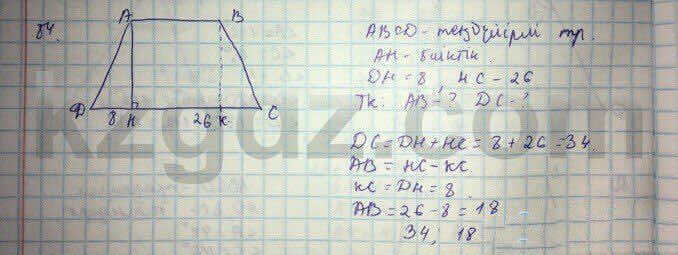 84.
A B
D 8 H 26 K C
ABCD - теңбүйірлі тр.
AH - биіктік.
DH = 8, HC - 26
Тк: AB - ? DC - ?
DC = DH + HC = 8 + 26 = 34
AB = HC - KC
KC = DH = 8
AB = 26 - 8 = 18
34, 18
kzgdz.com